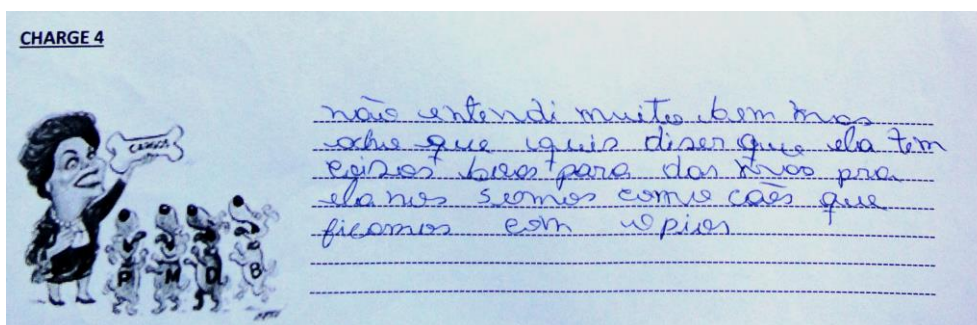 CHARGE 4
CARGOS
P M D B
não entendi muito bem mas
acho que quis diser que ela tem
coisas boas para dar mas pra
ela nos somos como cães que
ficamos com o pior